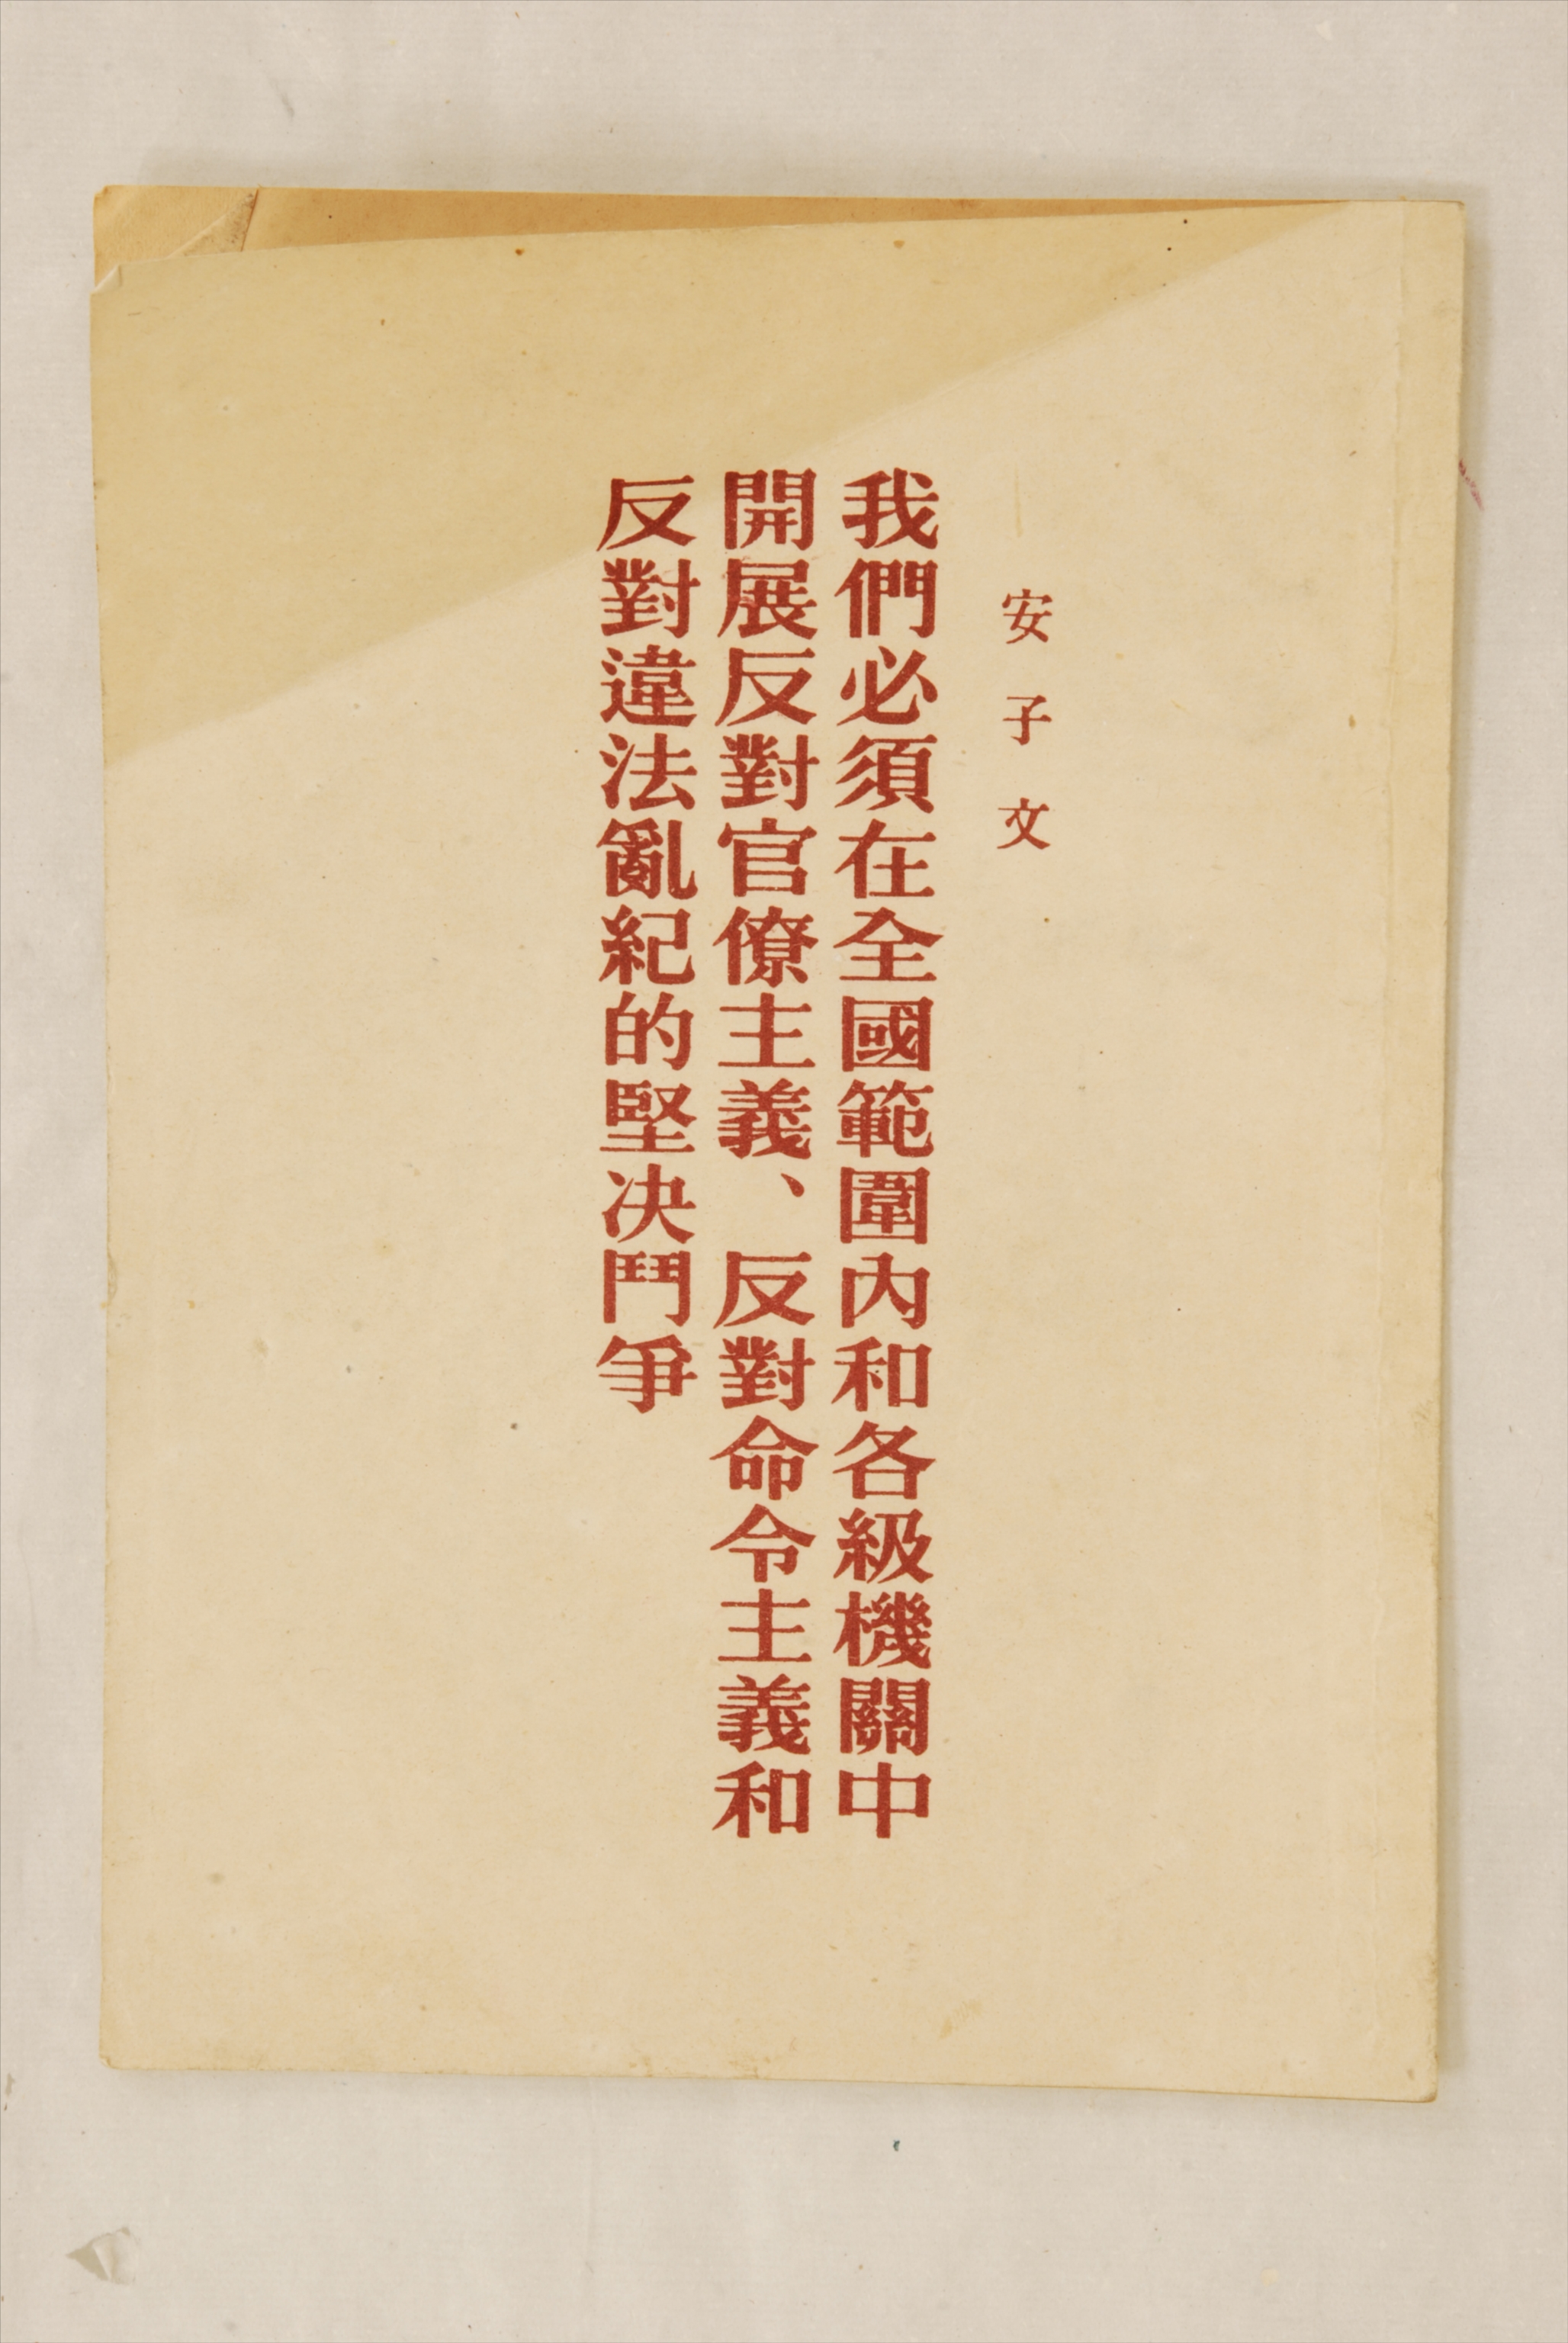 安子文
我們必須在全國範圍內和各級機關中
開展反對官僚主義、反對命令主義和
反對違法亂紀的堅決鬥爭